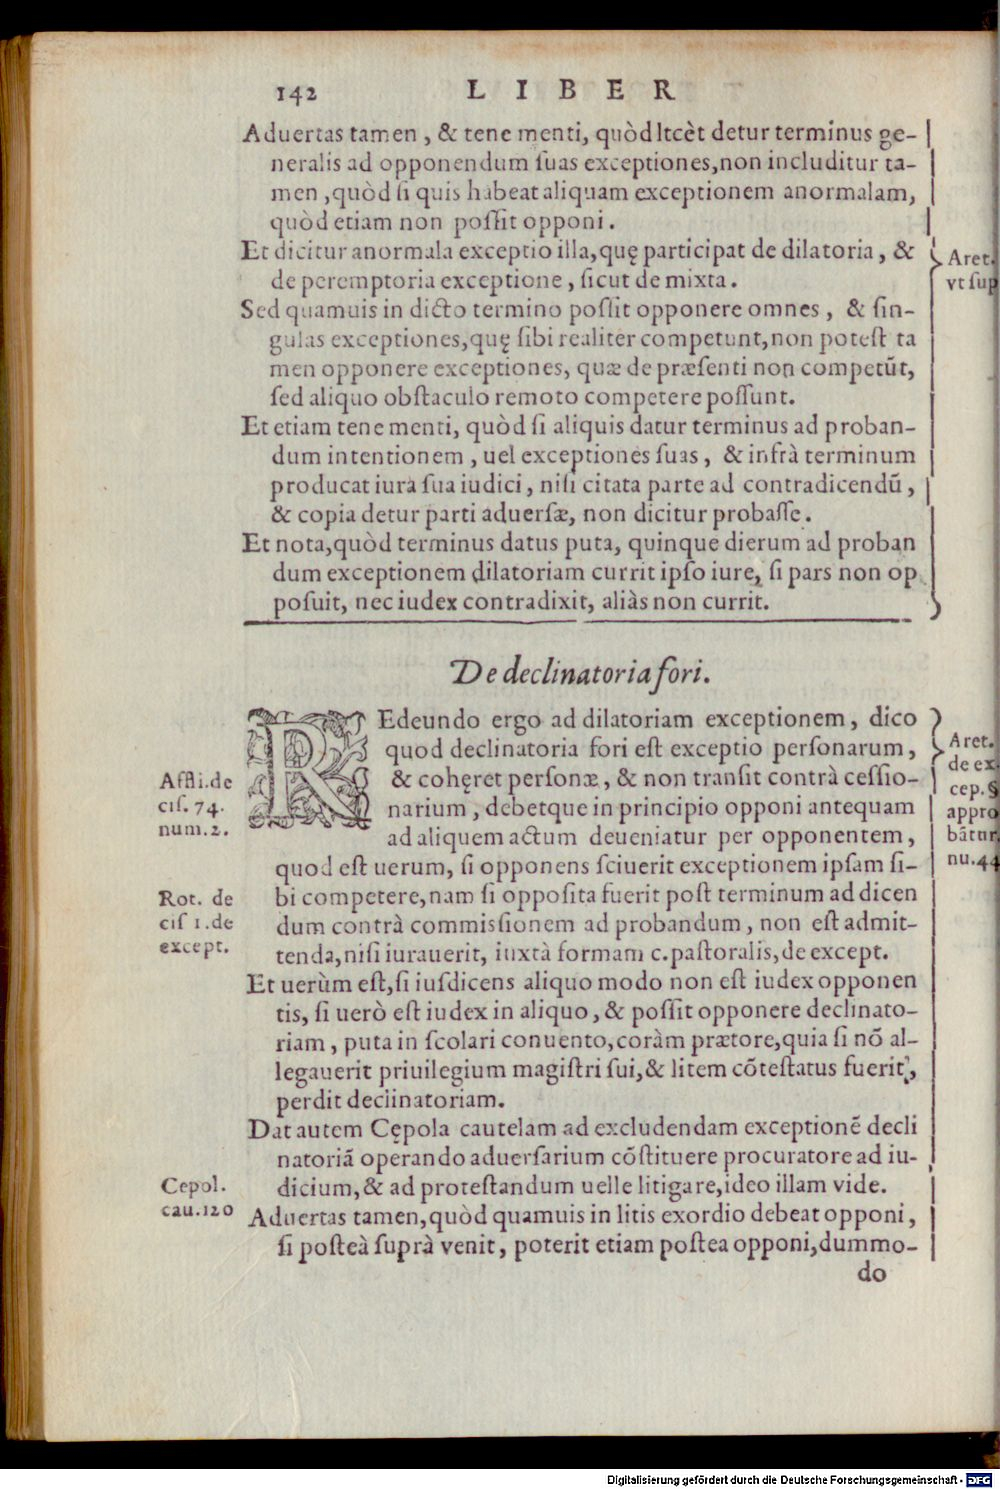 142 LIBER
Aduertas tamen, & tene menti, quòd ltcèt detur terminus ge-
neralis ad opponendum suas exceptiones, non includitur ta-
men, quòd si quis habeat aliquam exceptionem anormalam,
quòd etiam non possit opponi.
Et dicitur anormala exceptio illa, quę participat de dilatoria, &
de peremptoria exceptione, sicut de mixta.
Aret.
vt sup
Sed quamuis in dicto termino possit opponere omnes, & sin-
gulas exceptiones, quę sibi realiter competunt, non potest ta
men opponere exceptiones, quæ de præsenti non competũt,
sed aliquo obstaculo remoto competere possunt.
Et etiam tene menti, quòd si aliquis datur terminus ad proban-
dum intentionem, uel exceptiones suas, & infrà terminum
producat iura sua iudici, nisi citata parte ad contradicendũ,
& copia detur parti aduersæ, non dicitur probasse.
Et nota, quòd terminus datus puta, quinque dierum ad proban
dum exceptionem dilatoriam currit ipso iure, si pars non op
posuit, nec iudex contradixit, aliàs non currit.
De declinatoria fori.
REdeundo ergo ad dilatoriam exceptionem, dico
quod declinatoria fori est exceptio personarum,
& cohęret personæ, & non transit contrà cessio-
narium, debetque in principio opponi antequam
ad aliquem actum deueniatur per opponentem,
quod est uerum, si opponens sciuerit exceptionem ipsam si-
bi competere, nam si opposita fuerit post terminum ad dicen
dum contrà commissionem ad probandum, non est admit-
tenda, nisi iurauerit, iuxtà formam c. pastoralis, de except.
Aret.
de ex
cep. §
appro
bãtur.
nu. 44
Affli. de
cis. 74.
num. 2.
Rot. de
cis 1. de
except.
Et uerùm est, si iusdicens aliquo modo non est iudex opponen
tis, si uerò est iudex in aliquo, & possit opponere declinato-
riam, puta in scolari conuento, coràm prætore, quia si nõ al-
legauerit priuilegium magistri sui, & litem cõtestatus fuerit,
perdit declinatoriam.
Dat autem Cępola cautelam ad excludendam exceptionẽ decli
natoriã operando aduersarium cõstituere procuratore ad iu-
dicium, & ad protestandum uelle litigare, ideo illam vide.
Cepol.
cau. 120
Aduertas tamen, quòd quamuis in litis exordio debeat opponi,
si posteà suprà venit, poterit etiam postea opponi, dummo-
do
Digitalisierung gefördert durch die Deutsche Forschungsgemeinschaft - DFG